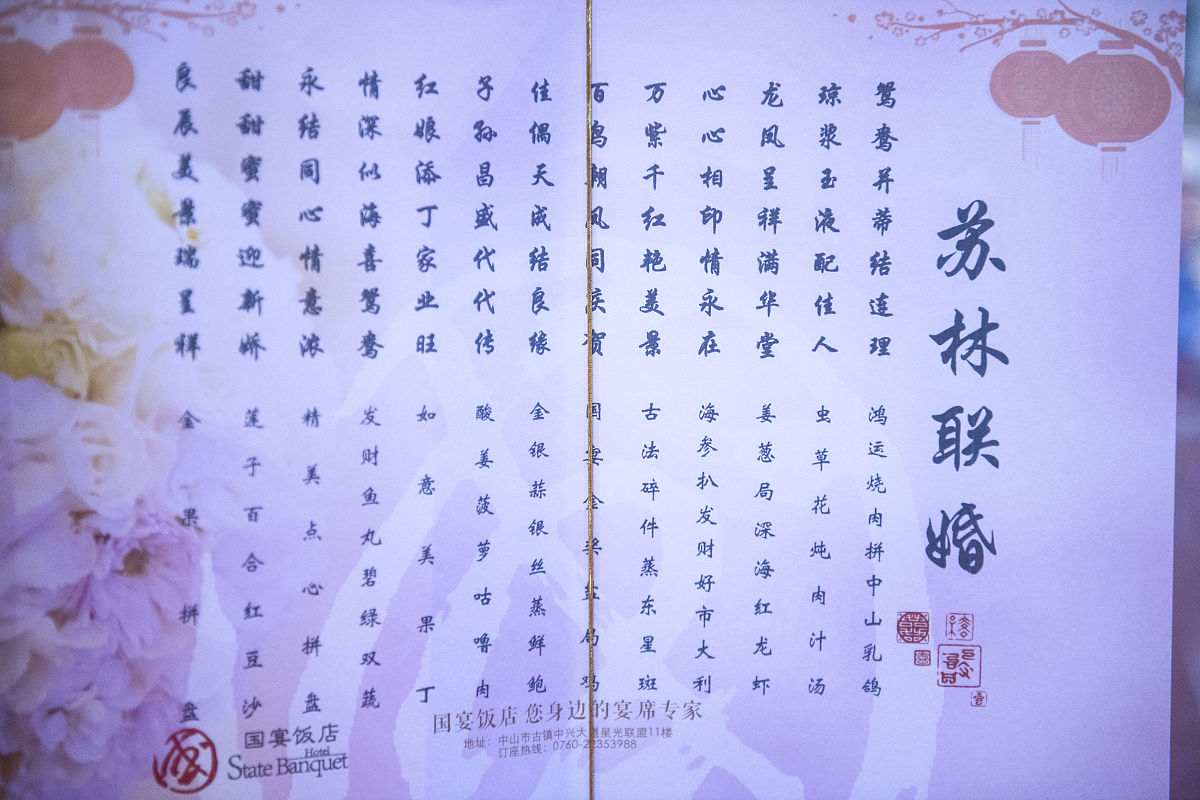 苏林联婚
鸳鸯并蒂结连理 鸿运烧肉拼中山乳鸽
琼浆玉液配佳人 虫草花炖肉汁汤
龙凤呈祥满华堂 姜葱焗深海红龙虾
心心相印情永在 海参扒发财好市大利
万紫千红艳美景 古法碎件蒸东星斑
百鸟朝凤同庆贺 国宴金奖盐焗鸡
佳偶天成结良缘 金银蒜银丝蒸鲜鲍
子孙昌盛代代传 酸姜菠萝咕噜肉
红娘添丁家业旺 如意美果丁
情深似海喜鸳鸯 发财鱼丸碧绿双蔬
永结同心情意浓 精美点心拼盘
甜甜蜜蜜迎新娇 莲子百合红豆沙
良辰美景瑞呈祥 金果拼盘
国宴饭店 您身边的宴席专家
地址：中山市古镇中兴大道星光联盟11楼
订座热线：0760-22353988
国宴饭店
Hotel
State Banquet